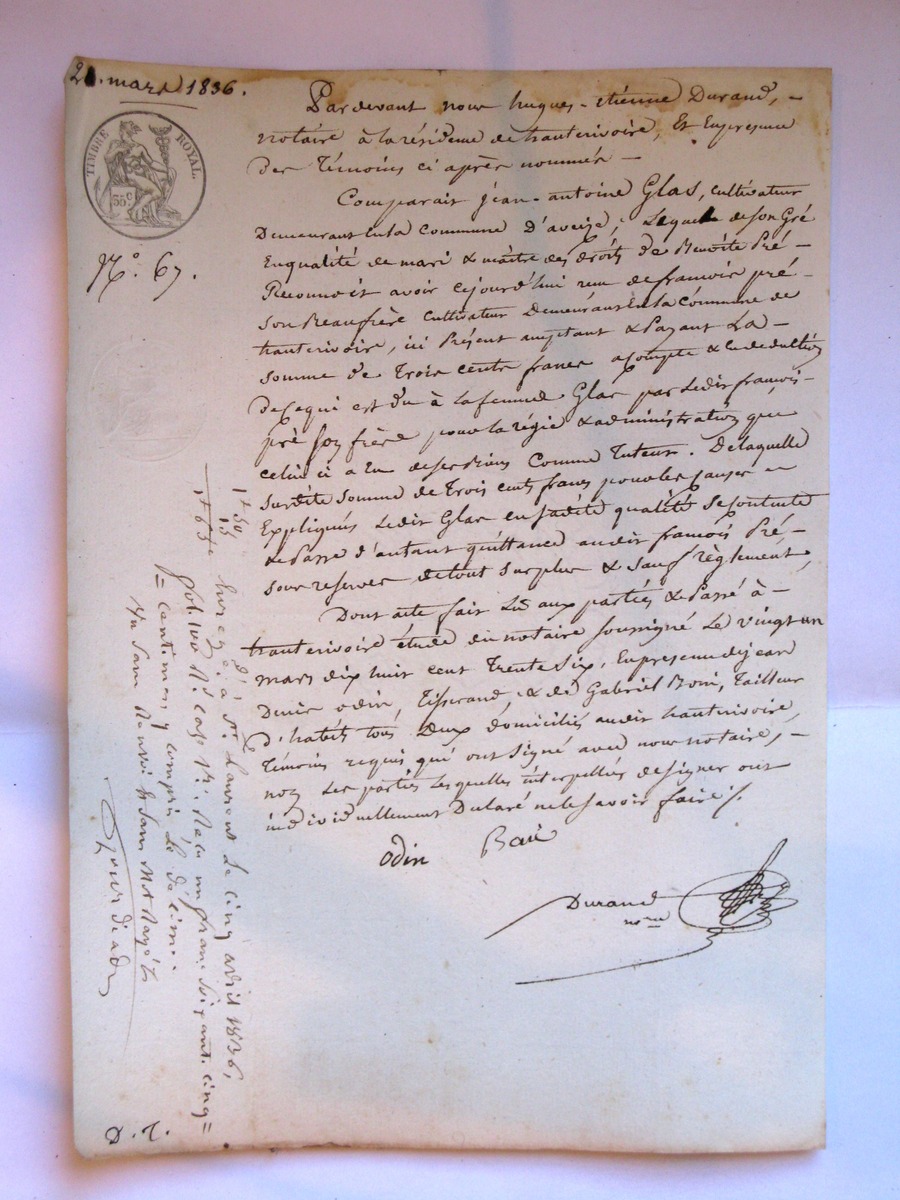 21. mars 1836.
TIMBRE ROYAL.
35 c
N.º 67.
Pardevant nous hugues-étienne Durand, -
notaire à la résidence de hauterivoire, Et Enpresence
Des Témoins ci après nommés -
Comparait jean-antoine Glas, cultivateur
Demeurant En la Commune D'aveize, Lequel de son Gré
En qualité de mari & maître des droits de Benoite Pré -
Reconnoit avoir cejourd'hui reçu de francois pré -
son Beaufrère cultivateur Demeurant En la commune de
hauterivoire, ici Présent acceptant & Payant La -
somme de Trois cents francs acompte & en deduction
De ce qui est du à la femme Glas par Ledit françois -
pré son frère pour la régie & administration que
celui ci a Eu de ses Biens Comme Tuteur. De laquelle
susdite somme de Trois cents francs pour les causes -
Expliqués Ledit Glas en sadite qualité se contente
& Passe d'autant quittance audit francois Pré, -
sous reserves de tout surplus & sauf règlement,
Dont acte fait Lu aux parties & Passé à -
hauterivoire étude du notaire soussigné Le vingt un
mars dix huit cent Trente Six, En presence de jean
Denis odin, Tisserand, & de Gabriel Boni, Tailleur
D'habits tous Deux domiciliés audit hauterivoire,
Témoins requis qui ont Signé avec nous notaire, -
non Les parties Lesquelles interpellées de signer ont
individuellement Déclaré ne le savoir faire ./.
odin
Durand
nore
1f 50
15
1f 65
Enreg. à St. Laurent Le cinq avril 1836,
fol. Rº case Vº. Reçu un franc soixante cinq =
= centimes y compris Le décime.
D. T.